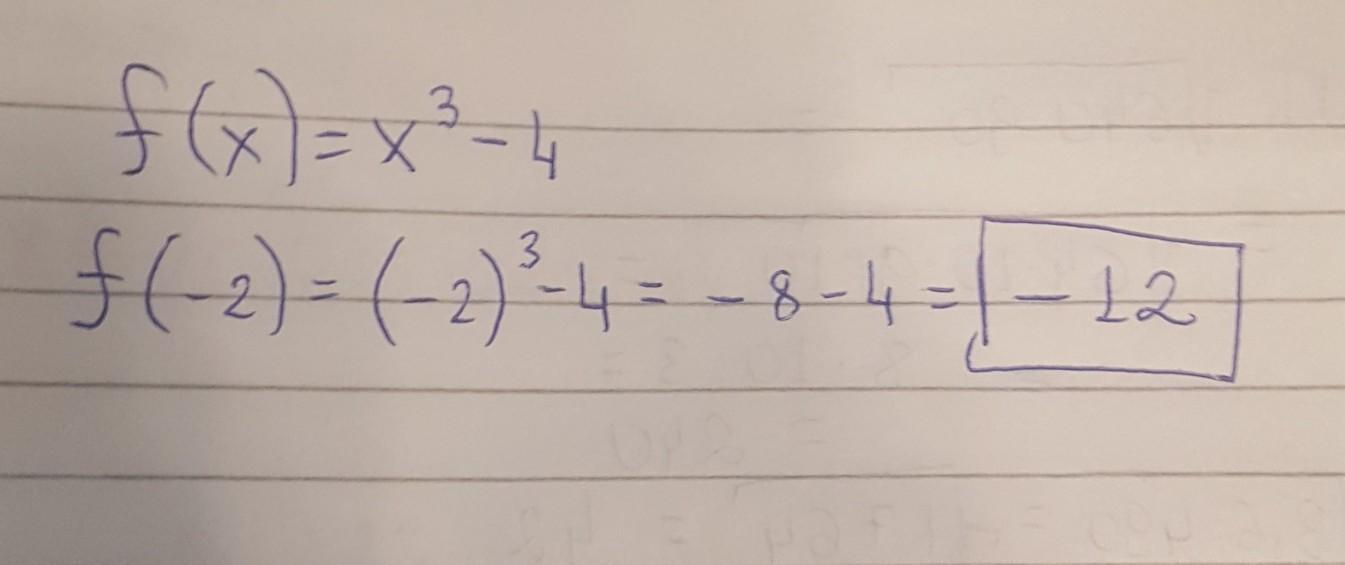 f(x)=x³-4
f(-2)=(-2)³-4=-8-4=-12